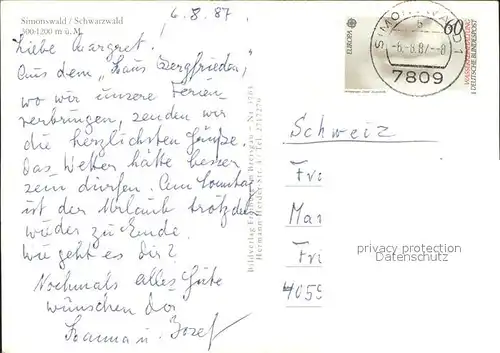 Simonswald / Schwarzwald
300-1200 m ü. M.
6.8.87.
Liebe Margret!
Aus dem "Haus Bergfrieden,
wo wir unsere Ferien
verbringen, senden wir
die herzlichsten Grüße.
Das Wetter hätte besser
sein dürfen. Am Sonntag
ist der Urlaub trotzdem
wieder zu Ende.
Wie geht es Dir?
Nochmals alles Gute
wünschen dir
Hanna u. Josef
EUROPA
60
DEUTSCHE BUNDESPOST
SIMONSWALD 1
-6.-8.87-8
7809
Schweiz
Fra
Mar
Fri
4059
privacy protection
Datenschutz